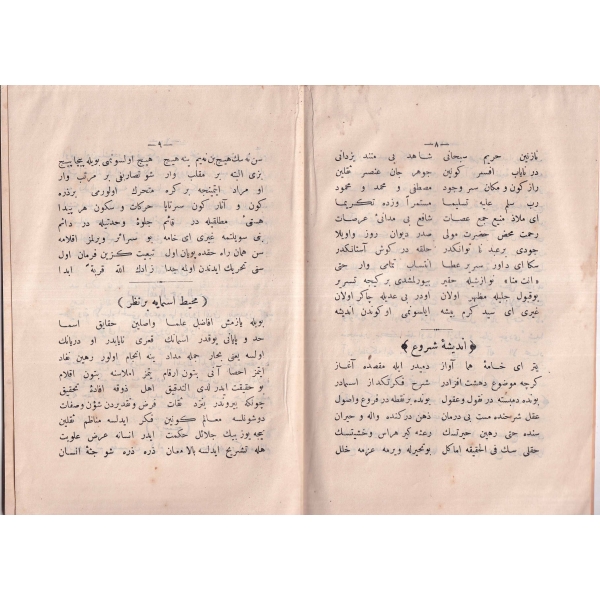 — ٨ —
نازنین حریم سبحانی شاهد بی مانند یزدانی
در نایاب افسر کونین جوهر جان عنصر ثقلین
راز کون و مکان سر وجود مصطفی و محمد و محمود
رب سلم علیه تسلیما مستمراً وزده تکریما
ای ملاذ منبع جمع عصات شافع بی مدانئ عرصات
رحمت محض حضرت مولی صدر دیوان روز واویلا
جودی برعبد نا توانکدر حلقه در کوش آستانکدر
سکا ای داور سریر عطا انتساب تامی وار حتی
بوقبول جلیله مظهر اولان اودر بی عدیله چاکر اولان
غیری ای سید کرم پیشه ایلسونمی اوکوندن اندیشه
﴿ اندیشهٔ شروع ﴾
یتر ای خامهٔ هما آواز دمیدر ایله مقصده آغاز
کرچه موضوع دهشت افزادر شرح فکرتکد از اسمادر
بونده دمبسته در نقول وعقول بونده برنقطه در فروع واصول
عقل شرحنده مست بی درمان ذهن درکنده واله و حیران
سنده حتی رهین حیرتسک رعشه کیر هراس وخشیتسک
حقلی سك فی الحقیقه اماکل بوتحیرله ویرمه عزمه خلل
— ٩ —
سن نه سك هیچ بن نه یم ینه هیچ هیچ اولسونمی بویله پیچاپیچ
بزی البته بر مقلب وار شو تصاریفی بر مرتب وار
او مراد ایتمینجه بر کره متحرك اولورمی برذره
کون و آثار کون سرتاپا حرکات و سکون هر پیدا
هستئ مطلقیله در قائم جلوهٔ وحدتیله در دائم
بنی سویلتمه غیری ای خامه بو سرائر ویرلمز اقلامه
سن همان راه حقده پویان اول تبعیت کزین فرمان اول
ستی تحریك ایدندن اوله جدا زادك الله قربة ابدا
( محیط اسمایه برنظر )
بویله یازمش افاضل علما واصلین حقایق اسما
حد و پایانی یوقدر اسمانك قعری نایابدر او دریانك
اولسه یعنی بحار جمله مداد ینه انجام اولور رهین نفاد
ایتمز احصا آنی بتون ارقام یتمز املاسنه بتون اقلام
بو حقیقت ایدر لدی التدقیق اهل ذوقه افادهٔ تحقیق
چونکه بیروندر نزد ثقات فرض وتقدیردن شؤن وصفات
دوشونلسه معالم کونین فکر ایدلسه مناظم ثقلین
نیجه یوز بیك جلائل حکمت ایدر انسانه عرض علویت
هله تشریح ایدلسه بالامعان ذره ذره شو جثهٔ انسان